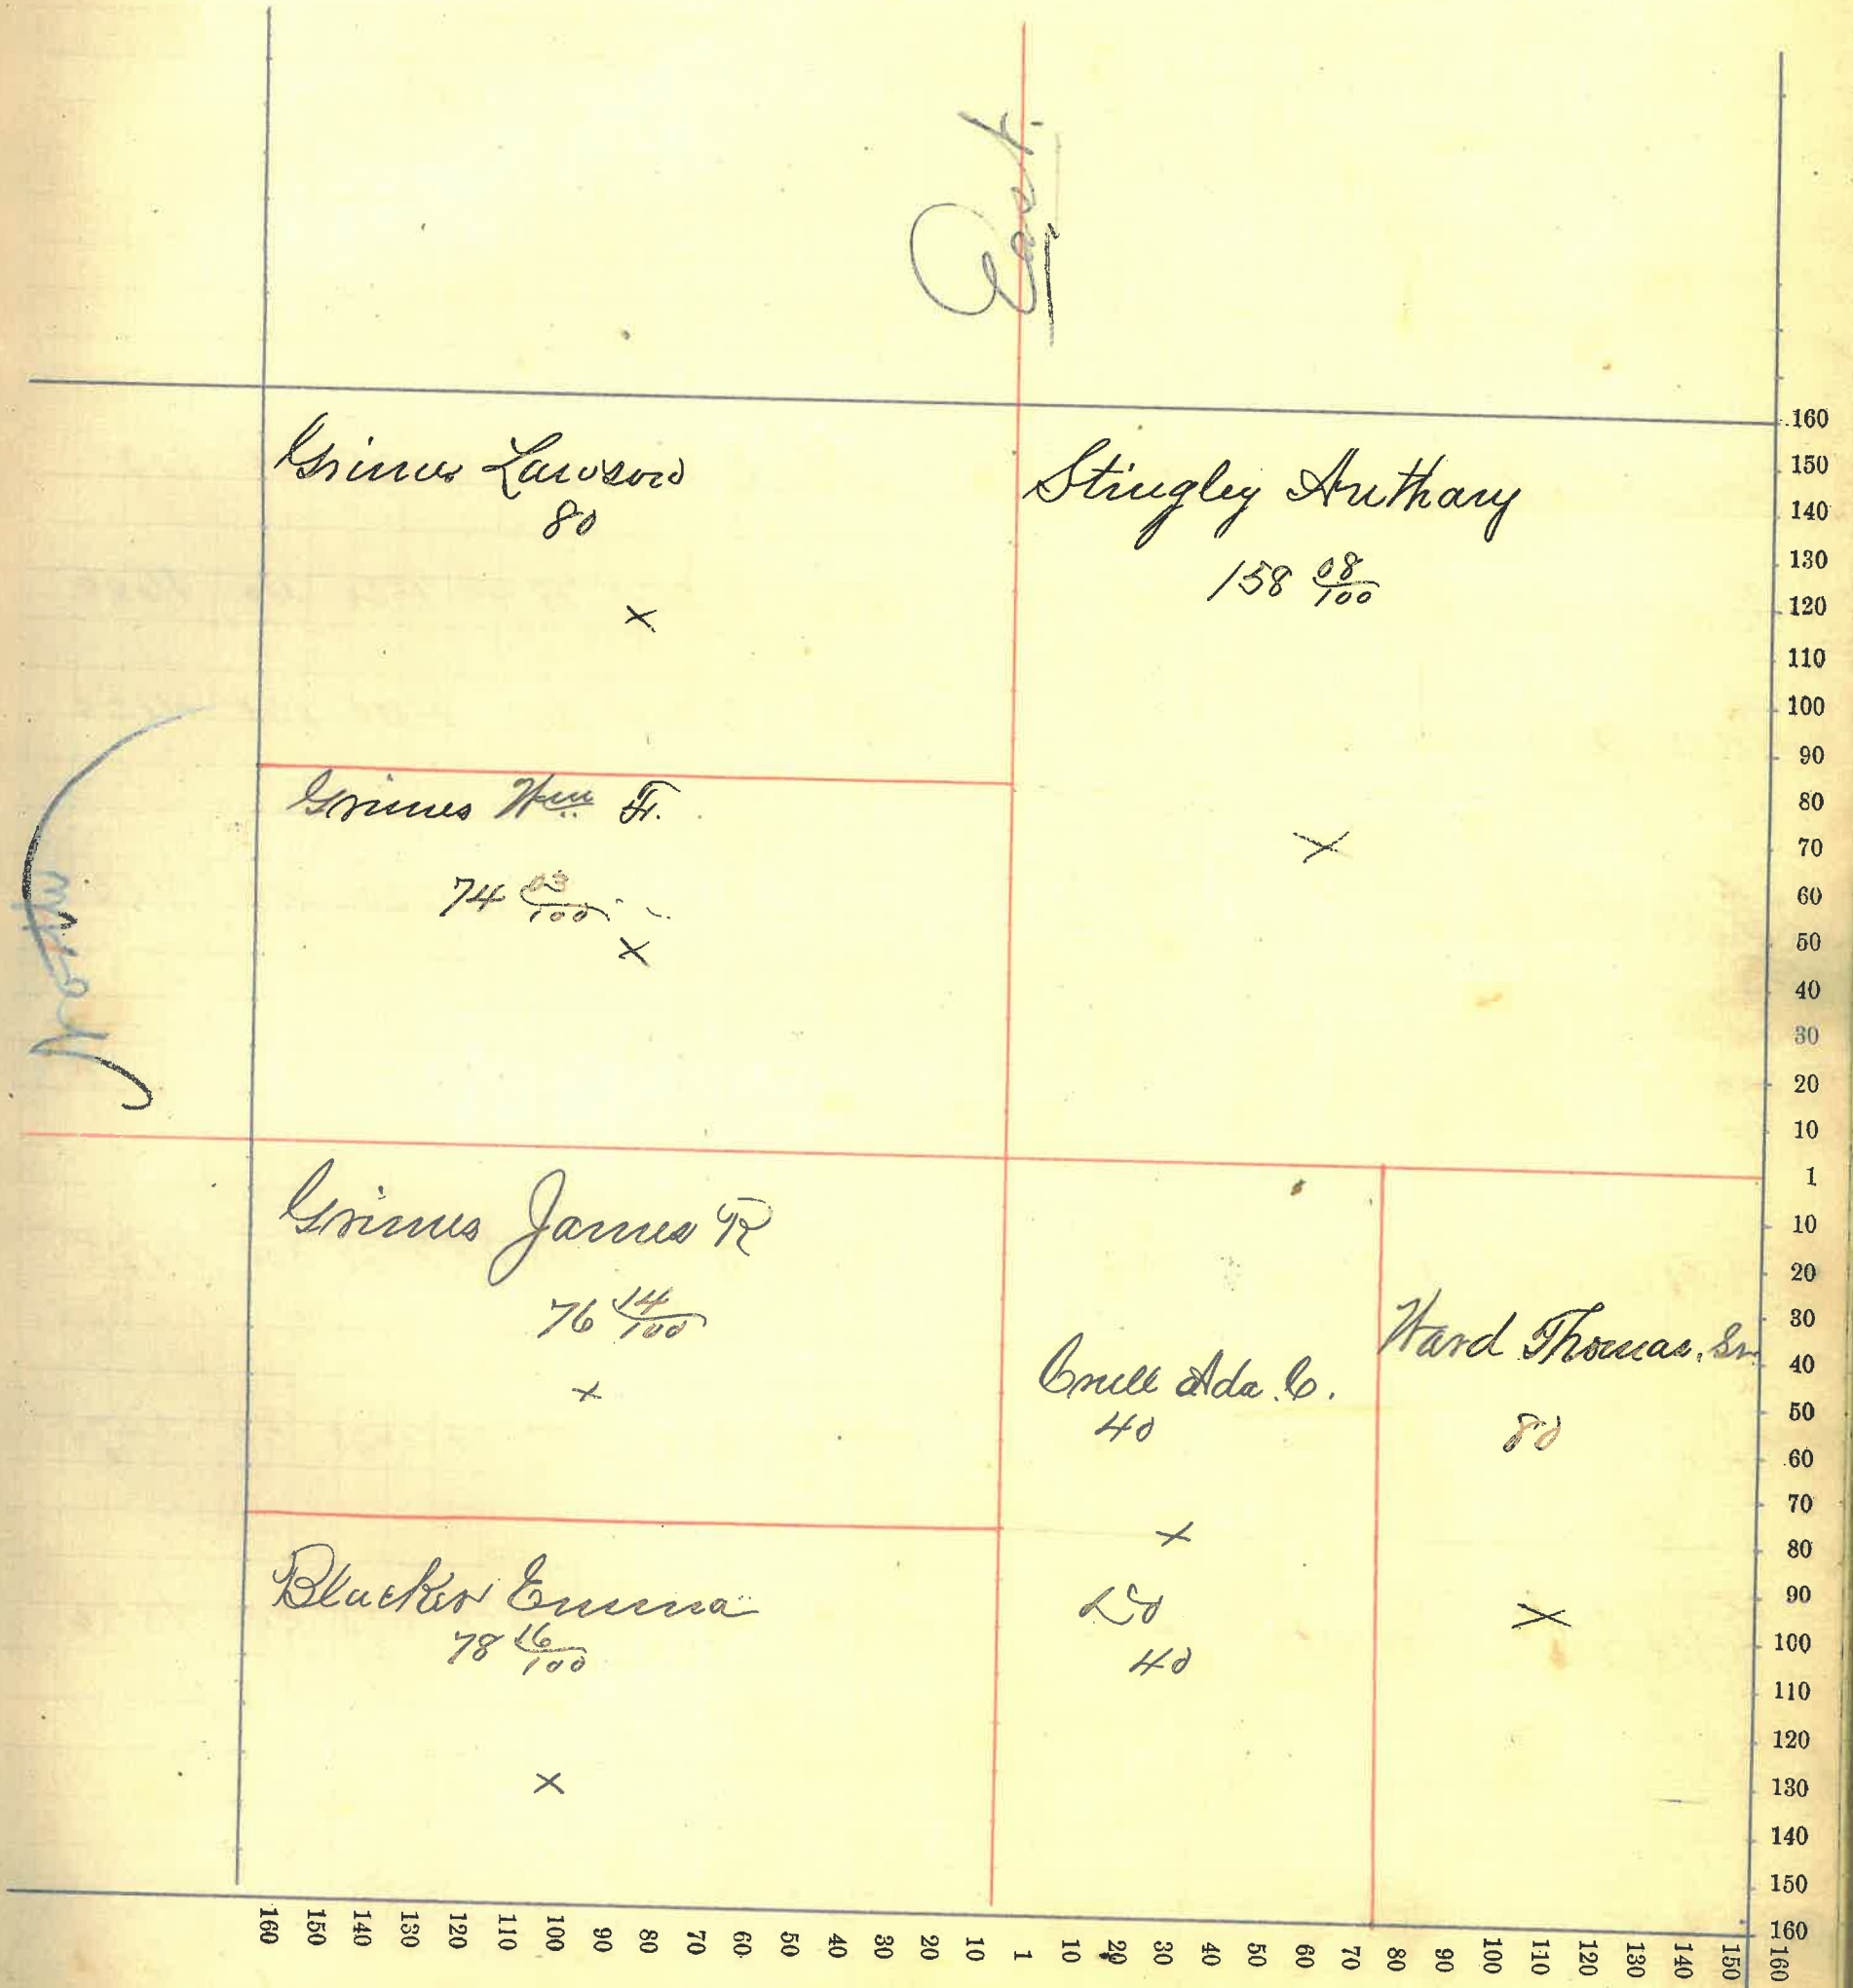 East.
North
Grimes Lawson
80
×
Stingley Anthany
158 08/100
×
Grimes Wm F.
74 03/100
×
Grimes James R
76 14/100
×
Ada C.
40
×
Do
40
Ward Thomas, Sr.
80
×
Emma
78 16/100
×
160
150
140
130
120
110
100
90
80
70
60
50
40
30
20
10
1
10
20
30
40
50
60
70
80
90
100
110
120
130
140
150
160
160 150 140 130 120 110 100 90 80 70 60 50 40 30 20 10 1 10 20 30 40 50 60 70 80 90 100 110 120 130 140 150 160